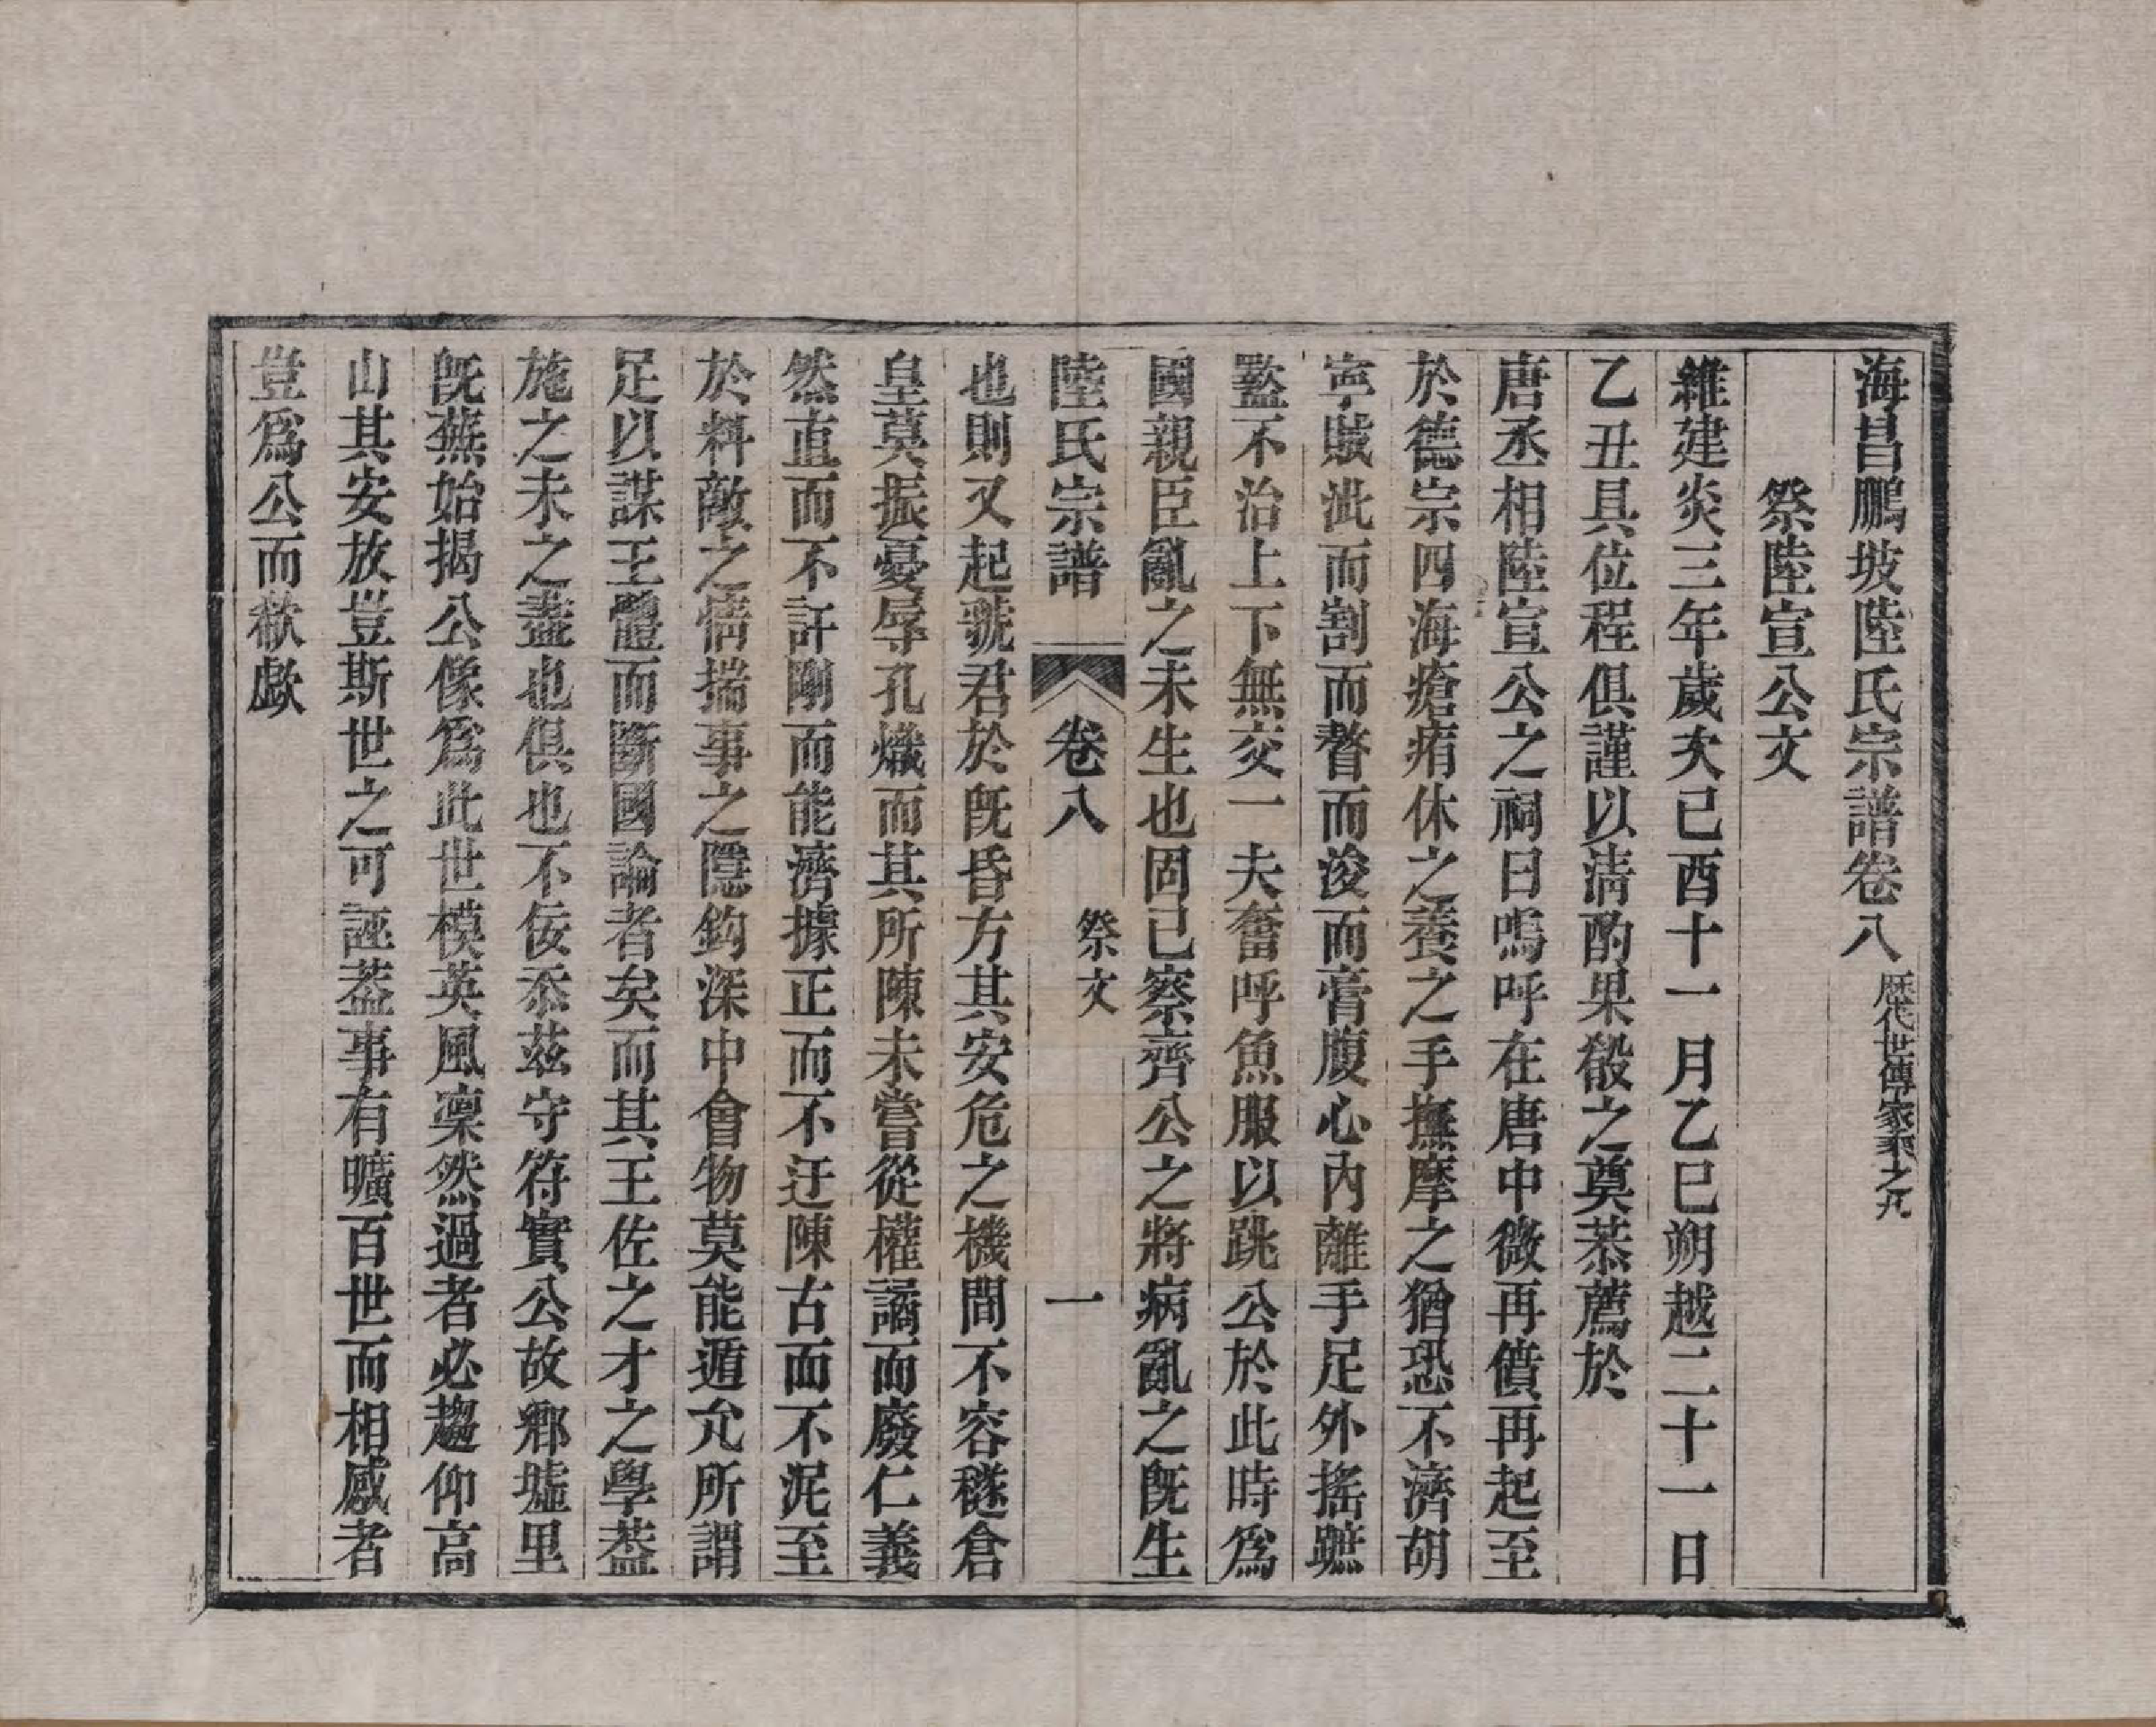 海昌鵬坡陸氏宗譜卷八 歷代世傳家乘之九
祭陸宣公文
維建炎三年歲次己酉十一月乙巳朔越二十一日
乙丑具位程俱謹以清酌果殽之奠恭薦於
唐丞相陸宣公之祠曰嗚呼在唐中微再僨再起至
於德宗四海瘡痏休之養之手撫摩之猶恐不濟胡
寧賊泚而割而瞀而浚而膏腹心內離手足外搖蹠
盭不治上下無交一夫奮呼魚服以跳公於此時爲
國親臣亂之未生也固已察齊公之將病亂之旣生
陸氏宗譜 卷八 祭文 一
也則又起虢君於旣昏方其安危之機間不容穟倉
皇莫振憂辱孔熾而其所陳未嘗從權譎而廢仁義
然直而不訐剛而能濟據正而不迂陳古而不泥至
於料敵之情揣事之隱鈎深中會物莫能遁允所謂
足以謀王體而斷國論者矣而其王佐之才之學葢
施之未之盡也俱也不佞忝茲守符實公故鄕墟里
旣蕪始揭公像爲此世模英風凜然過者必趨仰高
山其安放豈斯世之可誣葢事有曠百世而相感者
豈爲公而欷歔